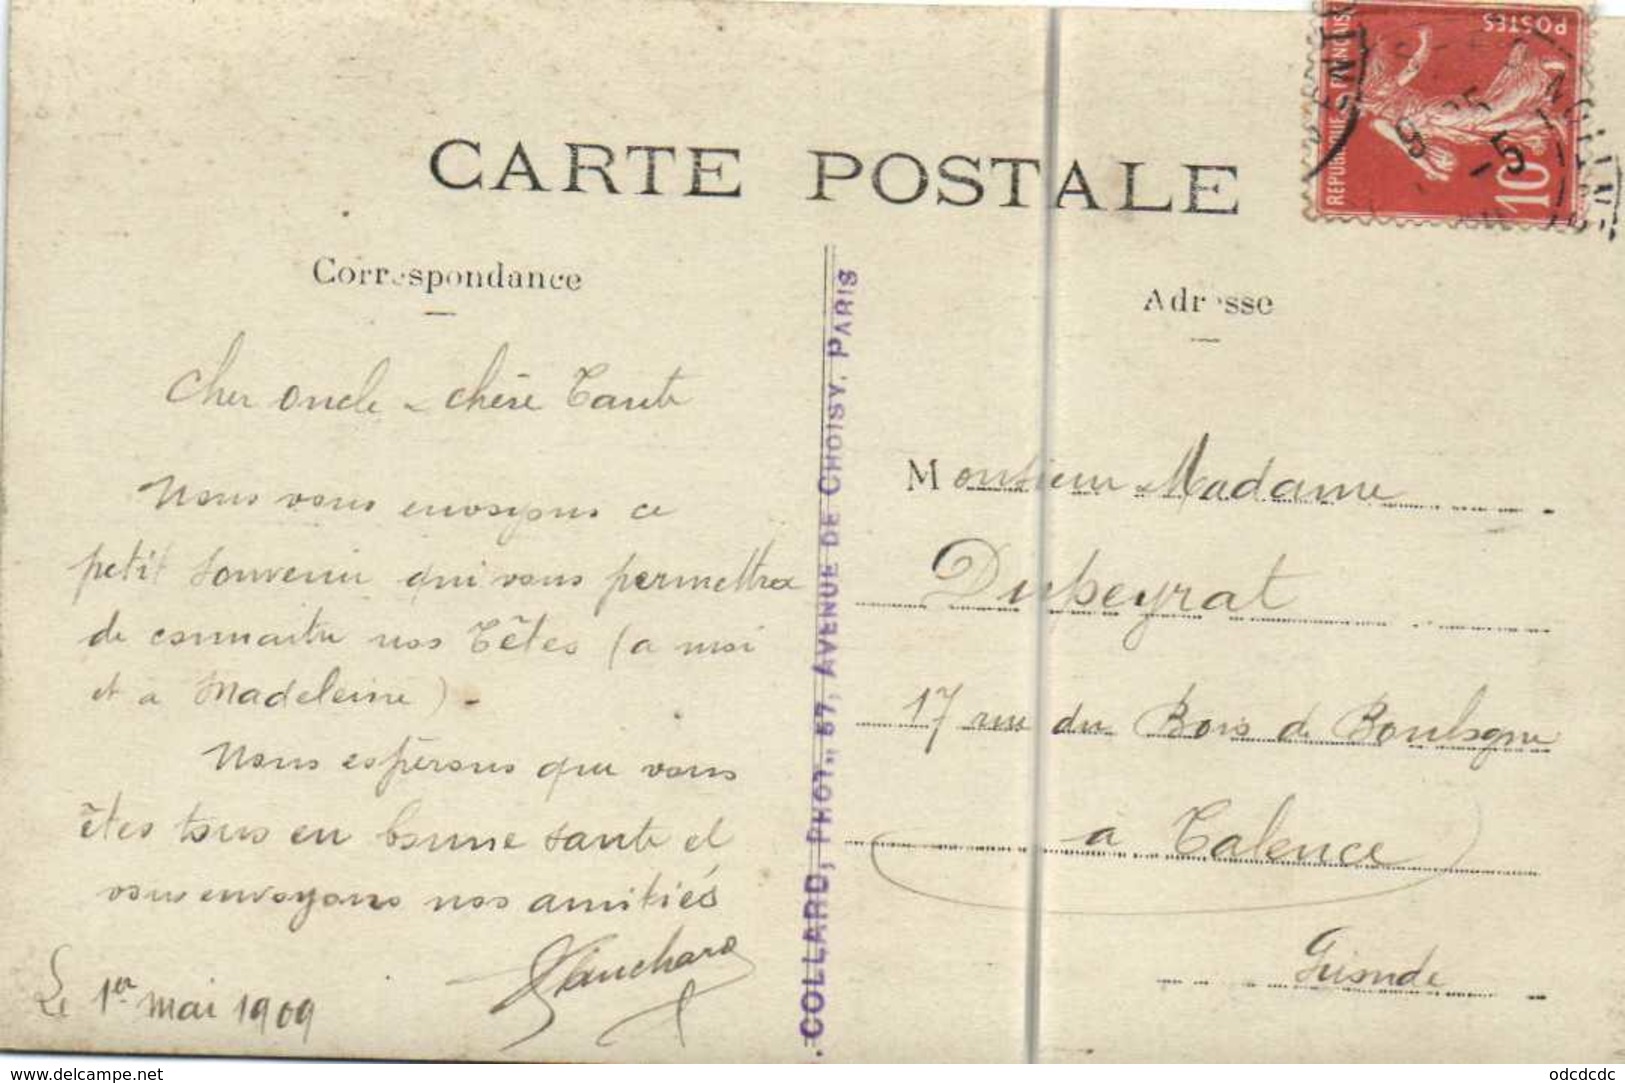 CARTE POSTALE
Correspondance
Cher oncle - chère Tante
Nous vous envoyons ce
petit souvenir qui vous permettra
de connaitre nos Têtes (a moi
et a Madeleine) -
Nous espérons que vous
êtes tous en bonne santé et
vous envoyons nos amitiés
Blanchard
Le 1er mai 1909
COLLARD, PHOT., 57, AVENUE DE CHOISY, PARIS
POSTES
REPUBLIQUE FRANÇAISE
10
Adresse
Monsieur Madame
Dupeyrat
17 rue du Bois de Boulogne
à Talence
Gironde
www.delcampe.net
odcdcdc